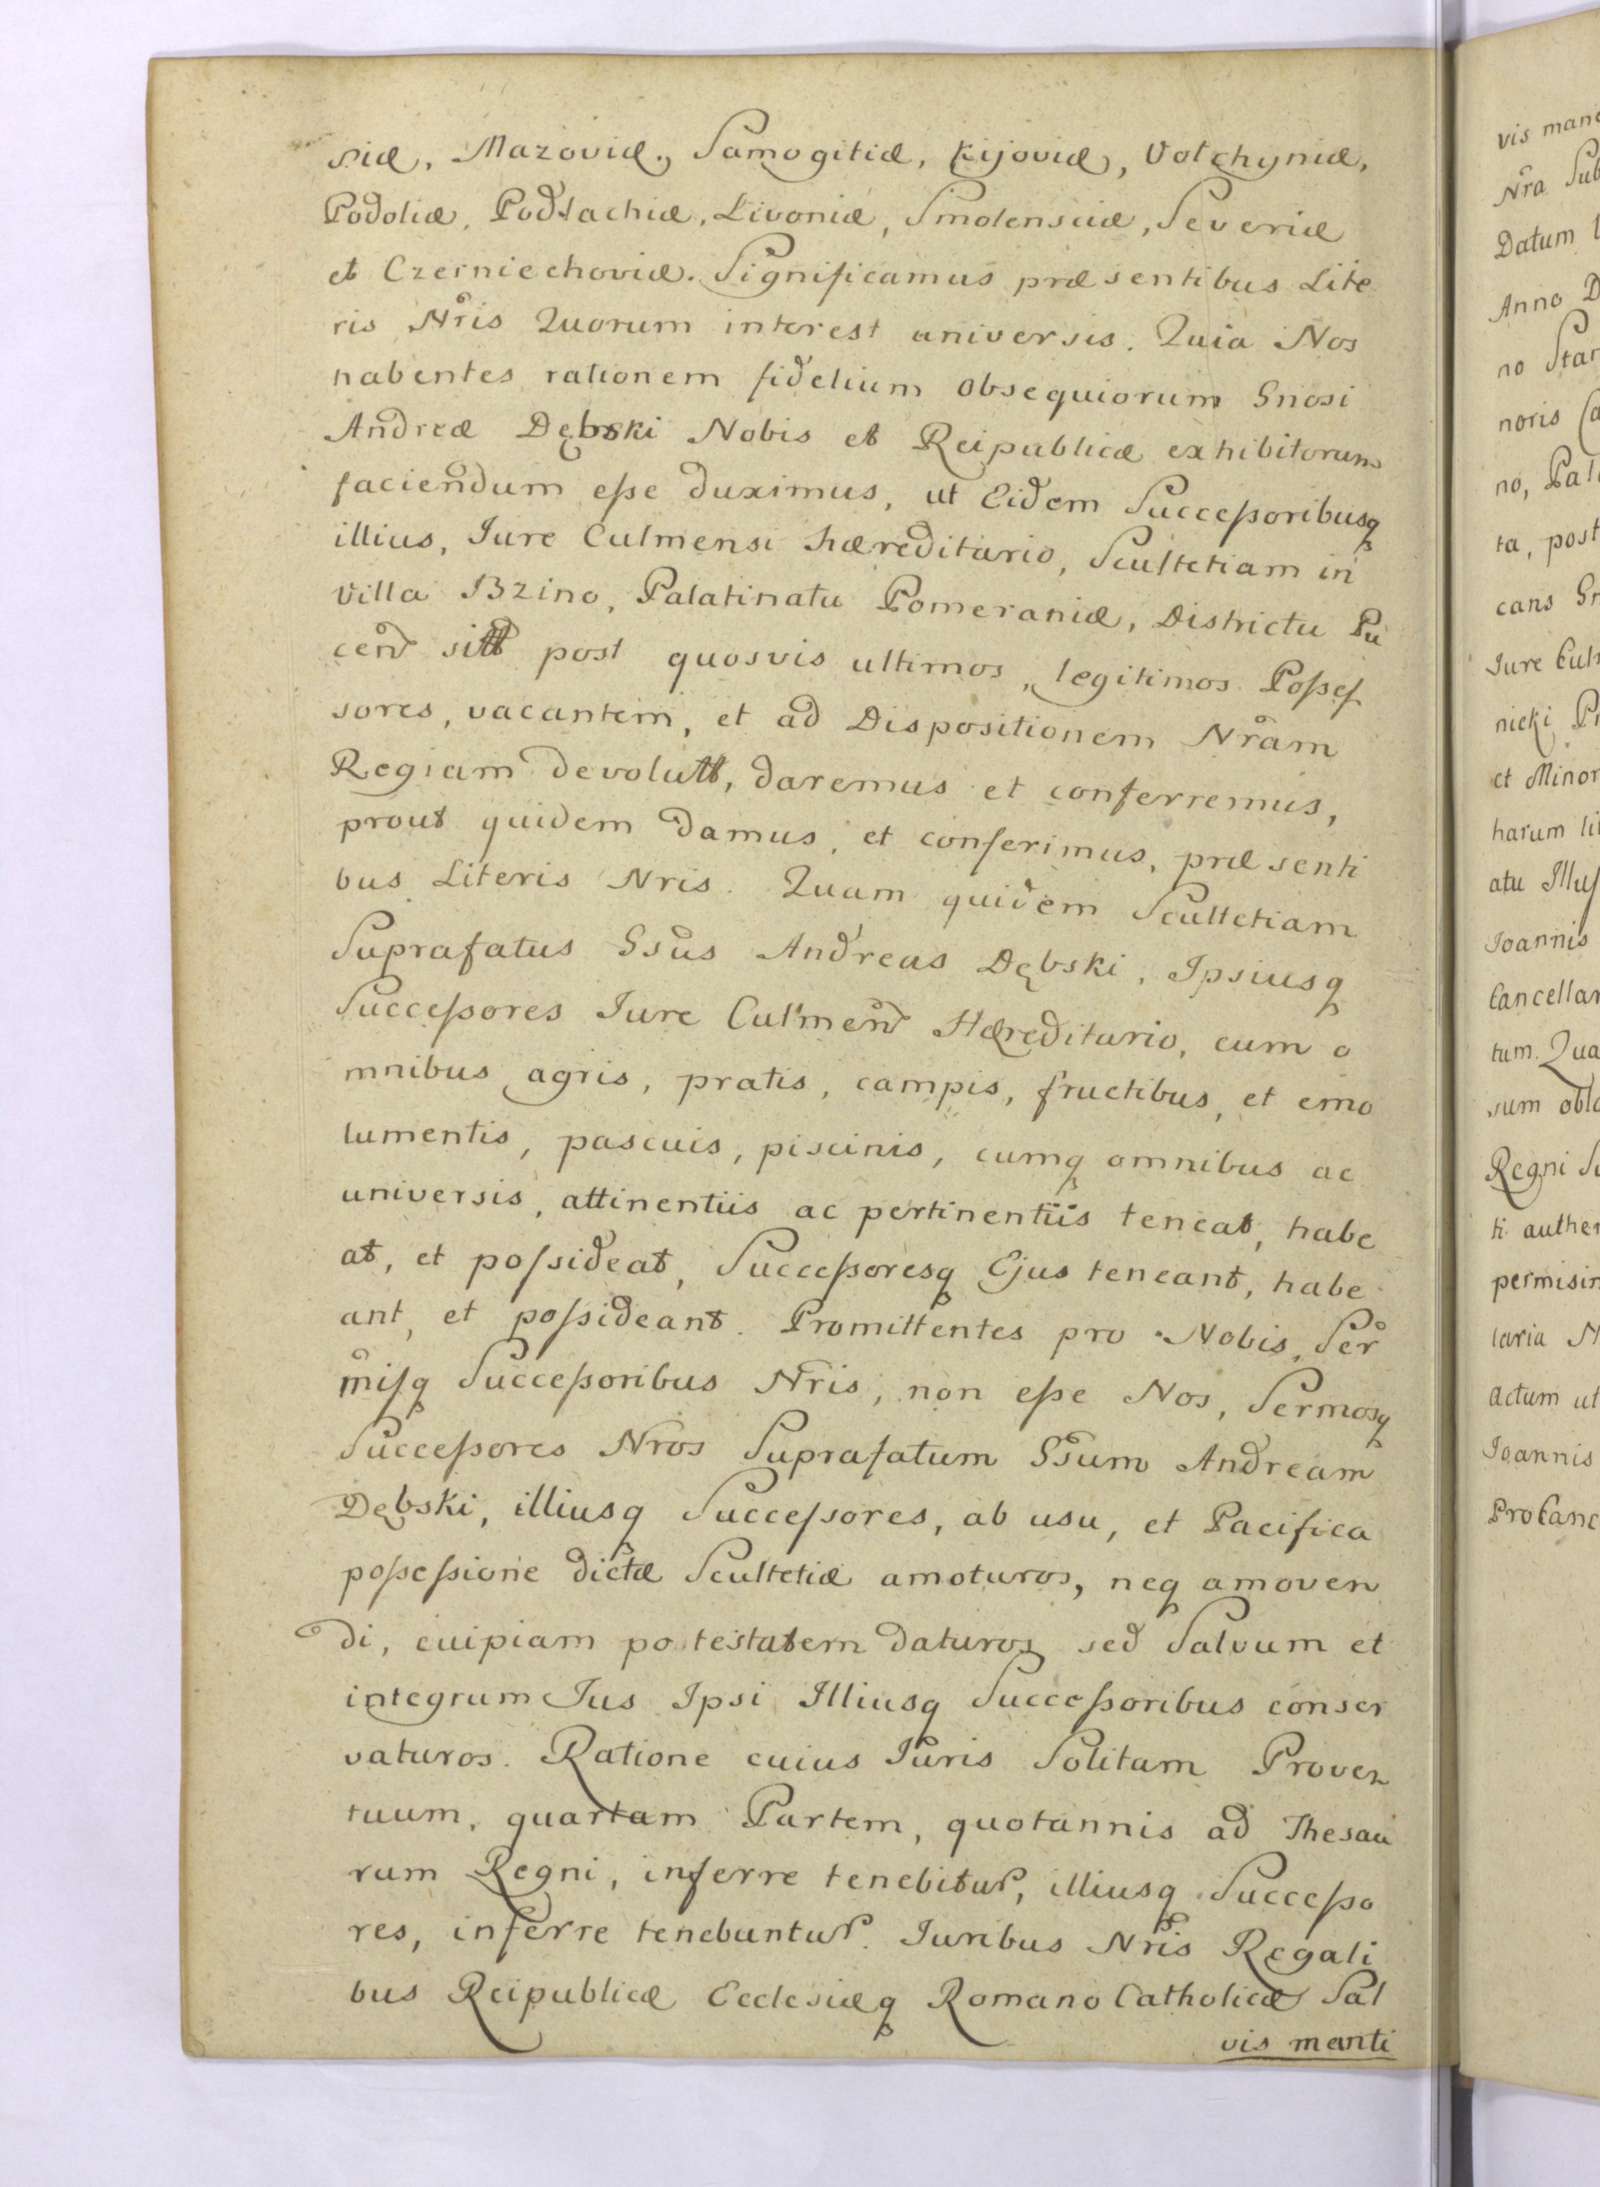 siæ, Mazoviæ, Samogitiæ, Kijoviæ, Volchyniæ,
Podoliæ, Podlachiæ, Livoniæ, Smolensciæ, Severiæ
et Czerniechoviæ. Significamus præsentibus Lite
ris Nris Quorum interest universis. Quia Nos
habentes rationem fidelium obsequiorum Gnosi
Andreæ Dębski Nobis et Reipublicæ exhibitorum
faciendum esse duximus, ut Eidem Successoribusq
illius, Iure Culmensi hæreditario, Scultetiam in
Villa Bzino, Palatinatu Pomeraniæ, Districtu Pu
cen post quosvis ultimos, legitimos Posses
sores, vacantem, et ad Dispositionem Nram
Regiam daremus et conferremus,
prout quidem damus, et conferimus, præsenti
bus Literis Nris. Quam quidem Scultetiam
Suprafatus Gsus Andreas Dębski, Ipsiusq
Successores Iure Culmen Hæreditario, cum o
mnibus agris, pratis, campis, fructibus, et emo
lumentis, pascuis, piscinis, cumq omnibus ac
universis, attinentiis ac pertinentiis teneat, habe
at, et possideat, Successoresq Ejus teneant, habe
ant, et possideant. Promittentes pro Nobis, Ser
misq Successoribus Nris, non esse Nos, Sermosq
Successores Nros Suprafatum Gsum Andream
Dębski, illiusq Successores, ab usu, et Pacifica
possessione dictæ Scultetiæ amoturos, neq amoven
di, cuipiam potestatem daturos sed Salvum et
integrum Ius Ipsi Illiusq Successoribus conser
vaturos. Ratione cuius Iuris Solitam Proven
tuum, quartam Partem, quotannis ad Thesau
rum Regni, inferre tenebitur, illiusq Successo
res, inferre tenebuntur. Iuribus Nris Regali
bus Reipublicæ Ecclesiæq Romano Catholicæ Sal
vis manti
vis
Nra Sub
Datum
Anno D
no Stan
noris
no, Pal
ta, post
cans Gn
Iure Cul
nicki
et Minor
harum
atu Illus
Ioannis
Cancellar
tum. Qua
sum obla
Regni Su
ti authen
permisim
laria
actum ut
Ioannis
ProCanc